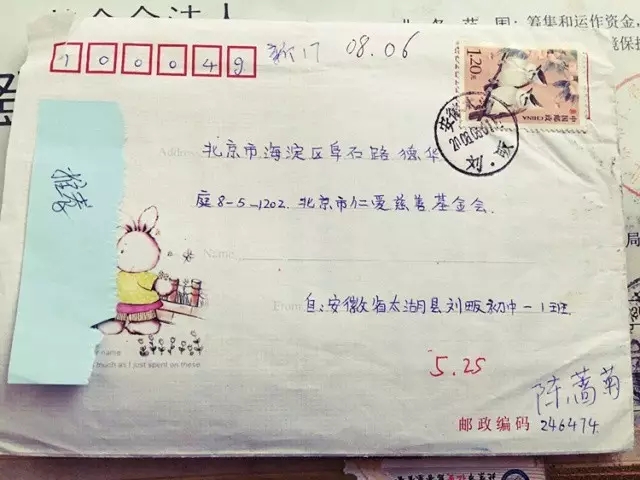 100049
新17 08.06
1.20元
中国邮政 CHINA
北京市海淀区阜石路德华
庭8-5-1202. 北京市仁爱慈善基金会
Name
From
自:安徽省太湖县刘畈初中一1班
name
much as I just spent on these.
5.25
邮政编码 246474
筹集和运作资金,